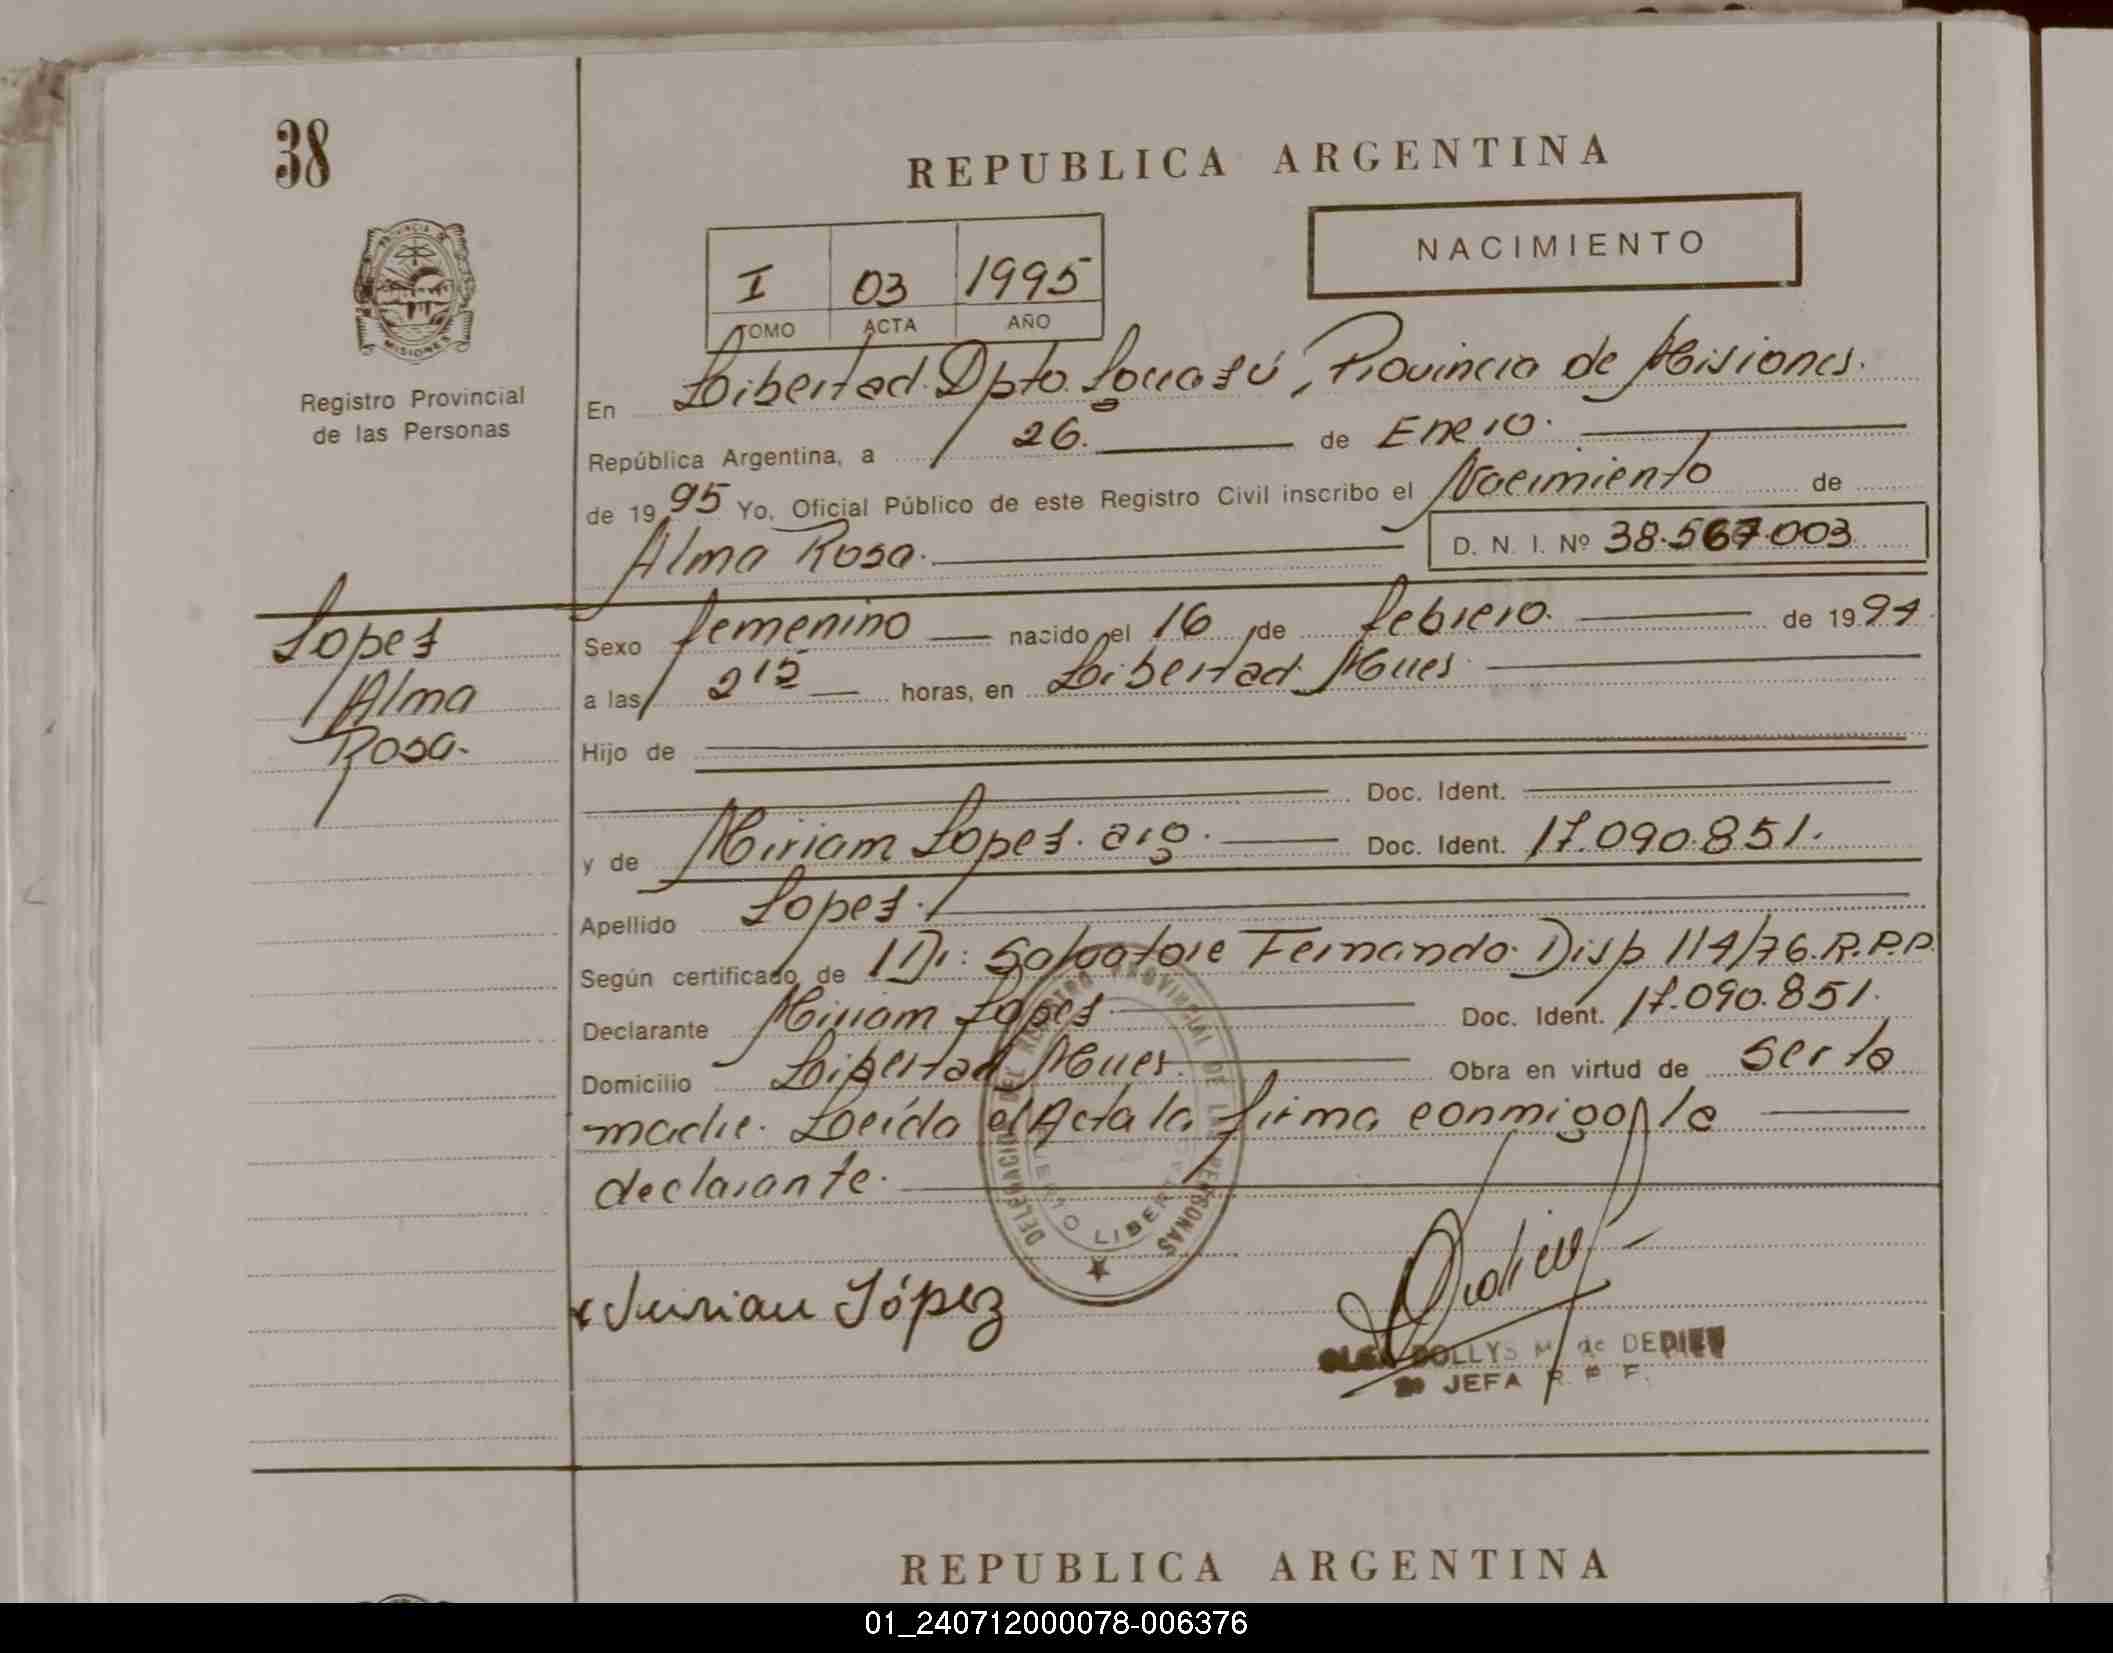 38
REPUBLICA ARGENTINA
PROVINCIA DE
MISIONES
Registro Provincial
de las Personas
NACIMIENTO
I 03 1995
TOMO ACTA AÑO
En Libertad Dpto. Iguazú, Provincia de Misiones.
República Argentina, a 26. de Enero.
de 1995 Yo, Oficial Público de este Registro Civil inscribo el Nacimiento de
Alma Rosa. D. N. I. Nº 38.567.003
Lopez
Alma
Rosa.
Sexo femenino nacido el 16 de febrero. de 1994.
a las 2 15 horas, en Libertad Mnes.
Hijo de
Doc. Ident.
y de Miriam Lopez. arg. Doc. Ident. 17.090.851.
Apellido Lopez.
Según certificado de Dr: Salvatore Fernando. Disp 114/76.R.P.P.
Declarante Miriam Lopez Doc. Ident. 17.090.851.
Domicilio Libertad Mnes. Obra en virtud de ser la
madre. Leída el Acta la firma conmigo la
declarante.
DELEGACION DEL REGISTRO PROVINCIAL DE LAS PERSONAS
PUERTO LIBERTAD
Miriam López
OLGA DOLLYS M. de DEDIEU
JEFA R. P. P.
REPUBLICA ARGENTINA
01_240712000078-006376